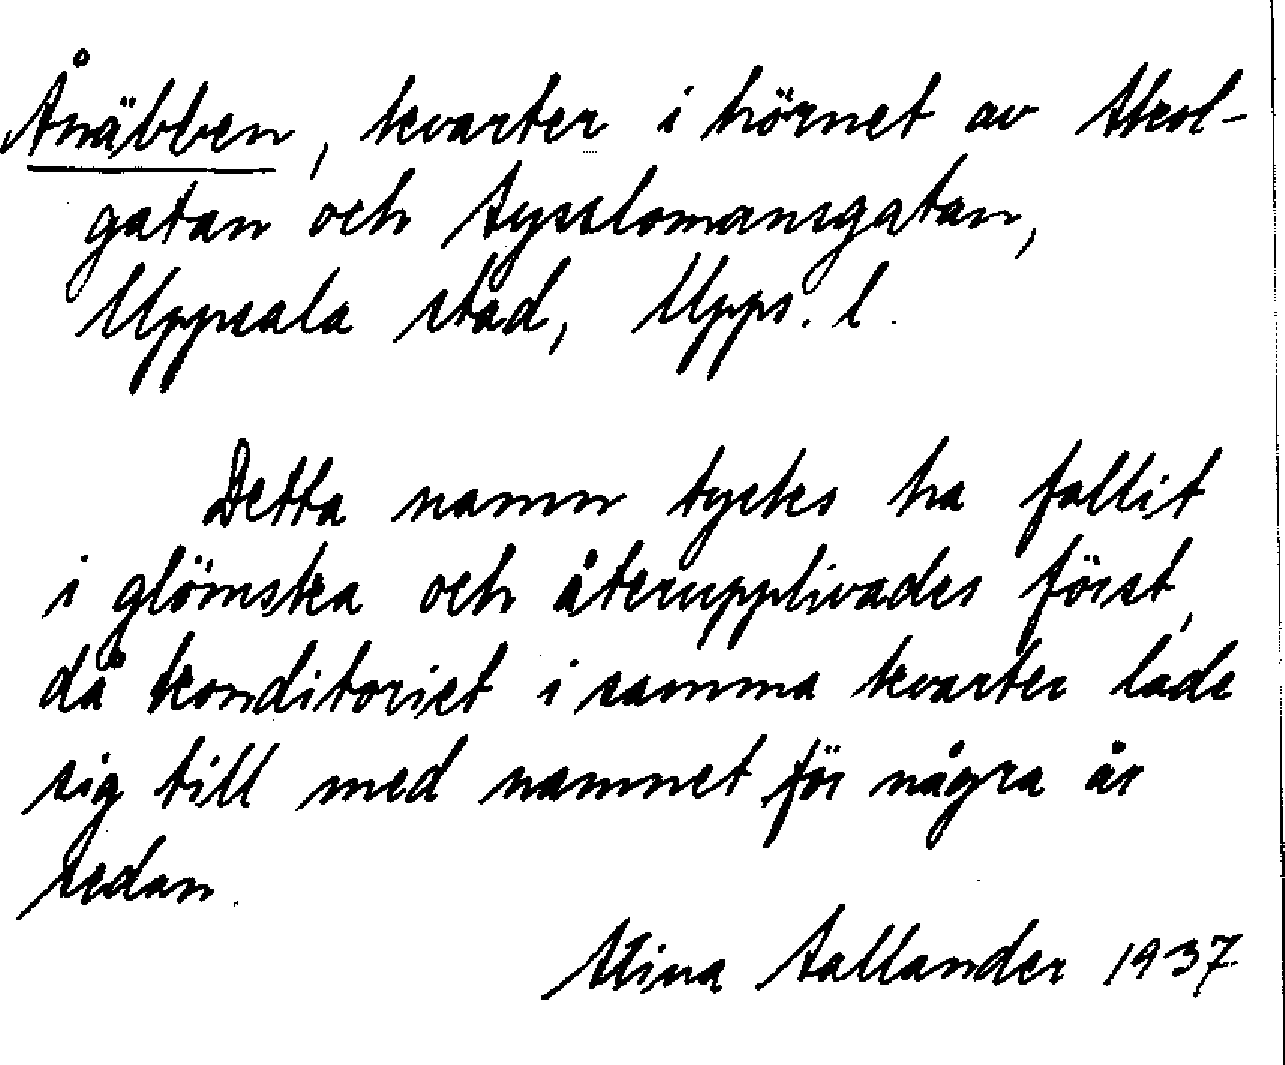 Ånäbben, kvarter i hörnet av Skol-
gatan och Sysslomansgatan,
Uppsala stad, Upps. l.
Detta namn tycks ha fallit
i glömska och återupplivades först,
då konditoriet i samma kvarter lade
sig till med namnet för några år
sedan.
Stina Sallander 1937